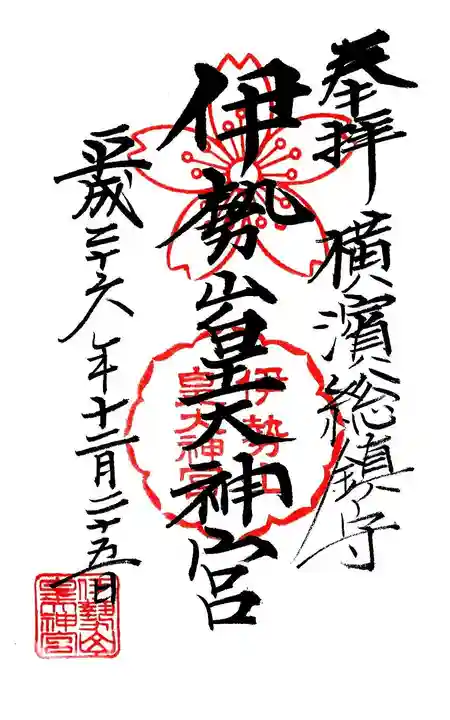 奉拝
横濱總鎮守
伊勢山皇大神宮
伊勢山
皇大神宮
平成二十六年十二月二十五日
伊勢山
皇大神宮